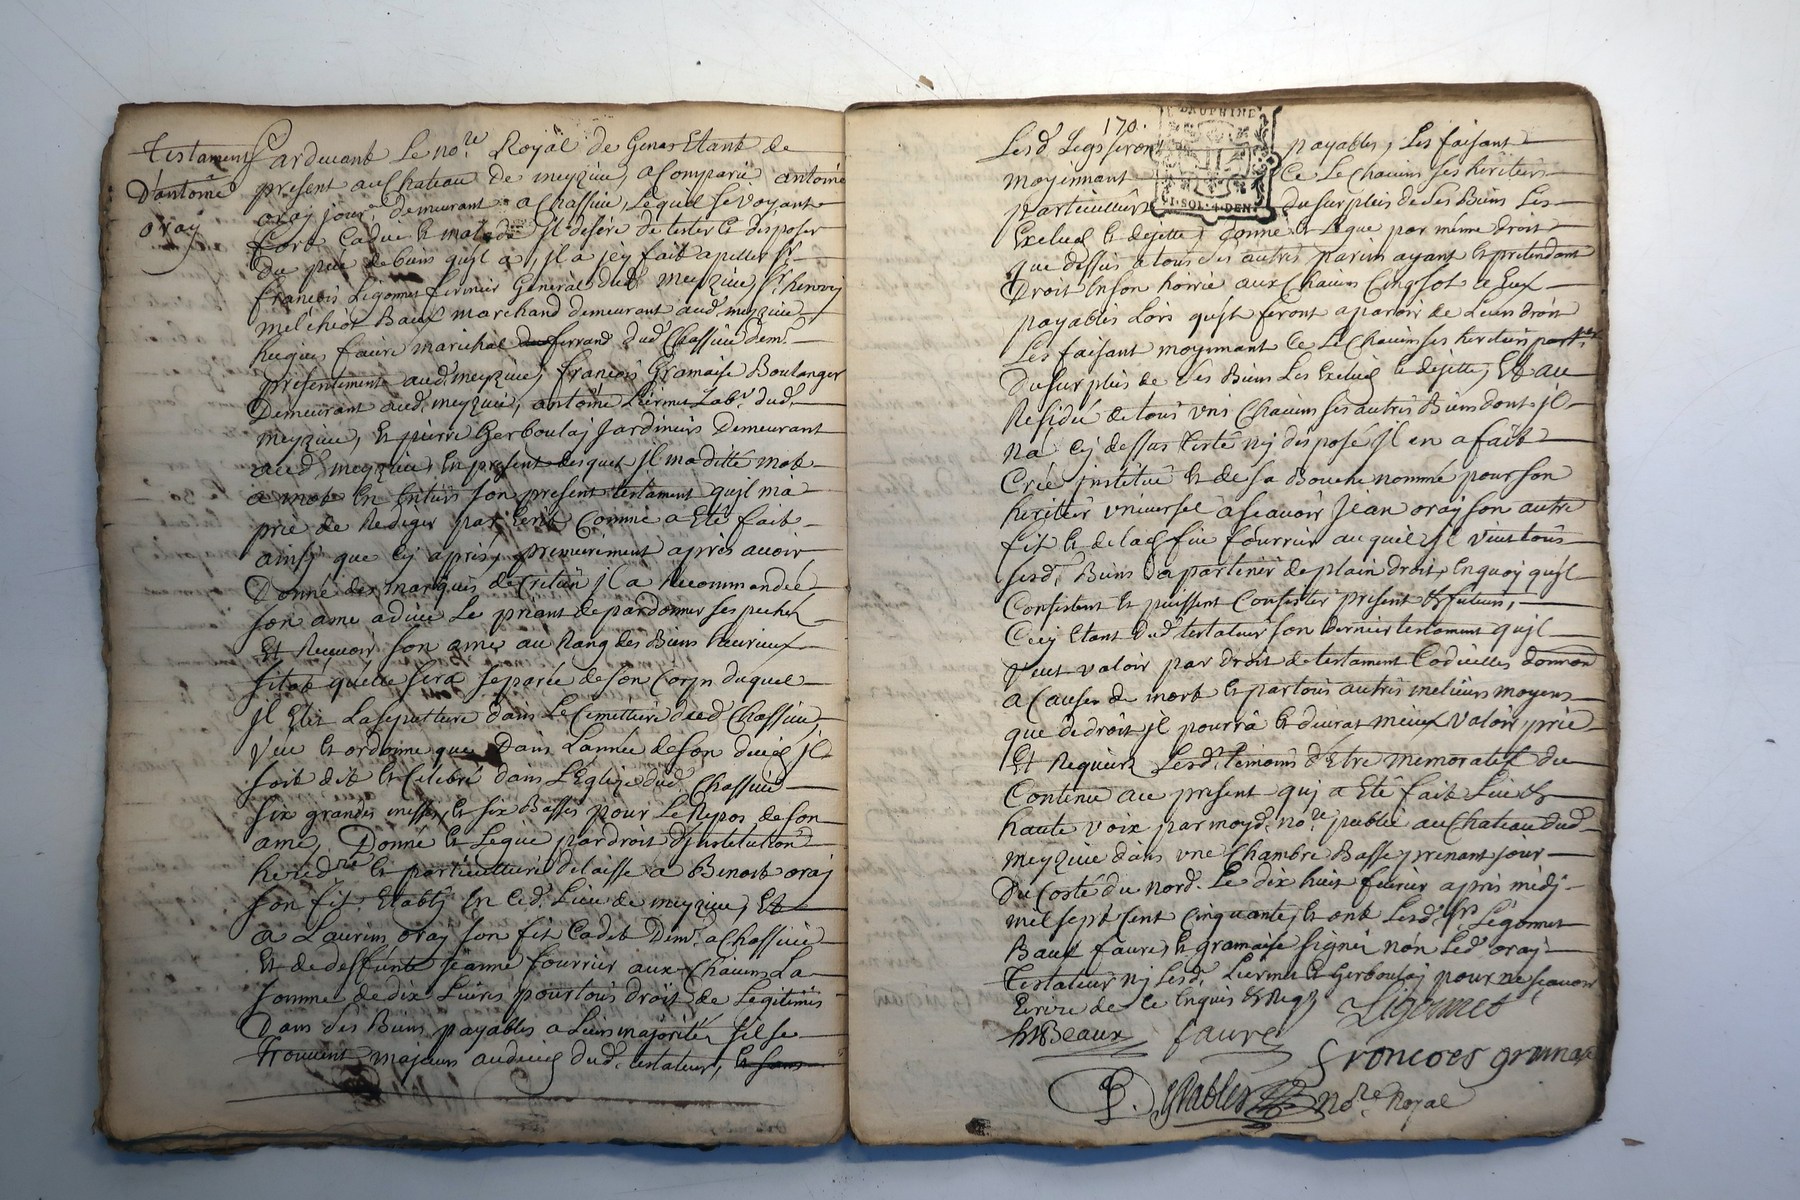 Testament
D'antoine
oray
Pardevant Le no.re Royal de Genas Etant de
present au Chateau de meyzieu, a Comparü antoine
oray jour.r demeurant a Chassieu, Lequel se voyant
fort Caduc et malade Il desire de tester et disposer
du peu de bien quil a, il a icy fait apeller Sr
francois Ligonnet fermier General dud. meyzieu, Sr henry
melchiot Baux marchand demeurant aud. meyzieu
hugues faure marechal ferrand dud Chassieu dem.t
presentement aud. meyzieu, francois Gramaise Boulanger
Demeurant aud. meyzieu, antoine Liermet Lab.r dud.
meyzieu, Et pierre Gerboulay Jardinier Demeurant
aud. meyzieu, En present desquels Il ma ditté mot
a mot et Entiers son present testament quil ma
prié de Rediger par Ecrit Comme a Eté fait
ainsy que cy apres, premierement apres avoir
Donné des marques de Cretien jl a Recommandée
son ame a dieu Le priant de pardonner ses pechés
Et Recevoir son ame au Rang des Biens heureux
sitot quelle sera separée de son Corps duquel
jl Elit La sepulture dans Le Cemettiere dud. Chassieu,
veut et ordonne que Dans L'année de son deces jl
soit dit et Celebré dans L'Eglize dud. Chassieu
six grandes messes, et six Basses pour Le Repos de son
ame, Donne et Legue par droit d'institution
hered.re et particulliere delaisse a Benoit oray
son fils Etably En Ced. Lieu de meyzieu, Et
a Laurent oray son fils Cadet Dem.t a Chassieu
Et de deffunte jeanne fourrier aux Chacuns La
somme de dix Livres pour tous droits de Legitimes
Dans ses Biens payables a Leurs majorités sil se
trouvent majeurs au deces dud. testateur,
170.
DAUPHINE
I·SOL·4·DEN
Lesd. Legs seront payables, Les faisant
moyennant Ce Le Chacuns ses heritiers
particulliers du surplus de ses Biens Les
Exclud et dejette, donne et Legue par même droit
que dessus a tous ses autres parens ayant et pretendant
Droit En son hoirie aux Chacuns Cinq sols
payables Lors quils feront aparoir de Leurs droits
Les faisant moyennant Ce Le Chacuns ses heritiers part.rs
Du surplus de ses Biens Les Exclud et dejette, Et au
Residu de tous uns Chacuns ses autres Biens dont jl
na cy dessus testé ny disposé jl en a fait
Créé jnstitué Et de sa Bouche nommé pour son
heritier vniversel a scavoir Jean oray son autre
fils et de lad. fue fourrier auquel jl veut tous
sesd. Biens apartenir de plain droit, En quoy quils
Consistent Et puissent Consister present et futurs,
Cecy Etant dud testateur son dernier testament quil
veut valoir par droit de testament Codicilles donnation
a Causes de mort Et par tous autres melieurs moyens
que de droit jl pourra Et devrat mieux valoir, prie
Et Requiert Lesd. temoins d'Etre memoratif du
Contenu au present quj a Eté fait Lu et
haute voix par moyd. no.re publié au Chateau dud.
meyzieu dans vne Chambre Basse prenant jour
Du costé du nord. Le dix huit fevrier apres midj
mil sept Cent Cinquante, Et ont Lesd. srs Ligonnet
Baux faure, et gramaise signés non Led. oray
testateur nj Lesd. Liermet et Gerboulay pour ne scavoir
Ecrire de Ce Enquis et Req.s Ligonnet
hBeaux faure
froncoes gramase
no.re Royal